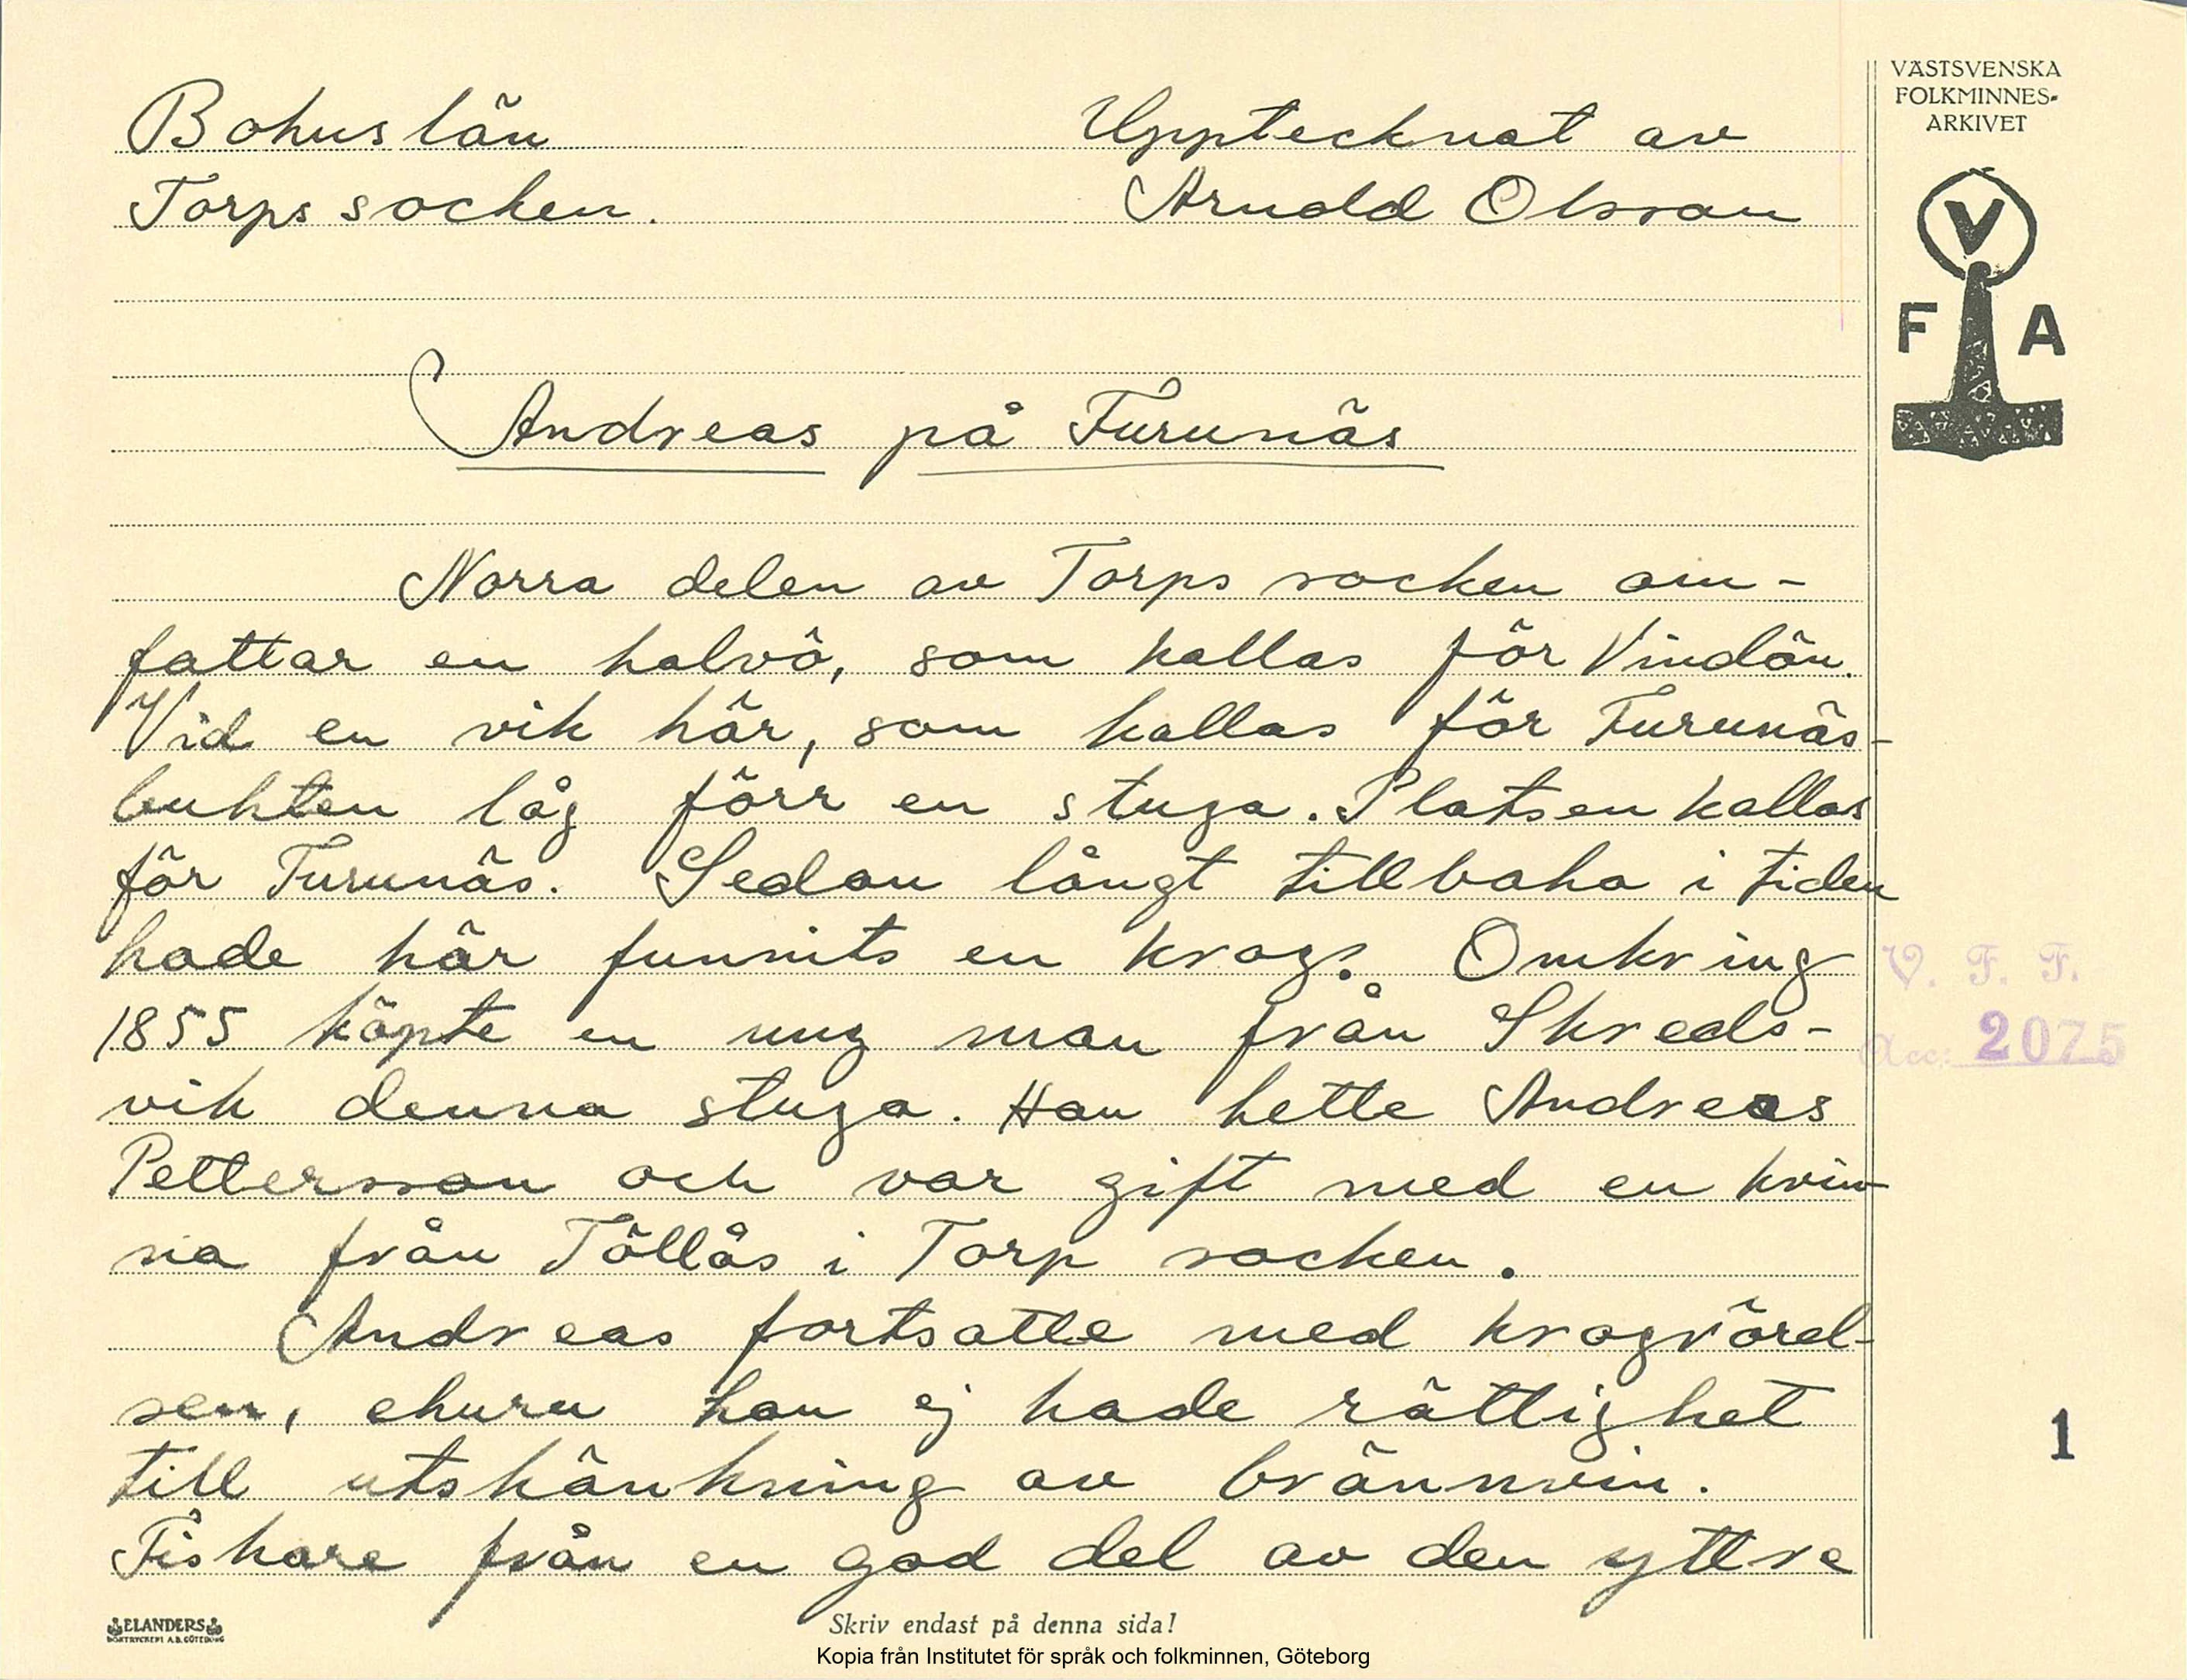 Bohuslän
Torps socken.
Upptecknat av
Arnold Olsson
VÄSTSVENSKA
FOLKMINNES-
ARKIVET
V
F A
Andreas på Furunäs
Norra delen av Torps socken om-
fattar en halvö, som kallas för Vindön.
Vid en vik här, som kallas för Furunäs-
bukten låg förr en stuga. Platsen kallas
för Furunäs. Sedan långt tillbaka i tiden
hade här funnits en krog. Omkring
1855 köpte en ung man från Skreds-
vik denna stuga. Han hette Andreas
Pettersson och var gift med en kvin-
na från Töllås i Torp socken.
Andreas fortsatte med krogrörel-
sen, ehuru han ej hade rättighet
till utskänkning av brännvin.
Fiskare från en god del av den yttre
V. F. F.
Acc: 2075
1
ELANDERS
BOKTRYCKERI A.B. GÖTEBORG
Skriv endast på denna sida!
Kopia från Institutet för språk och folkminnen, Göteborg